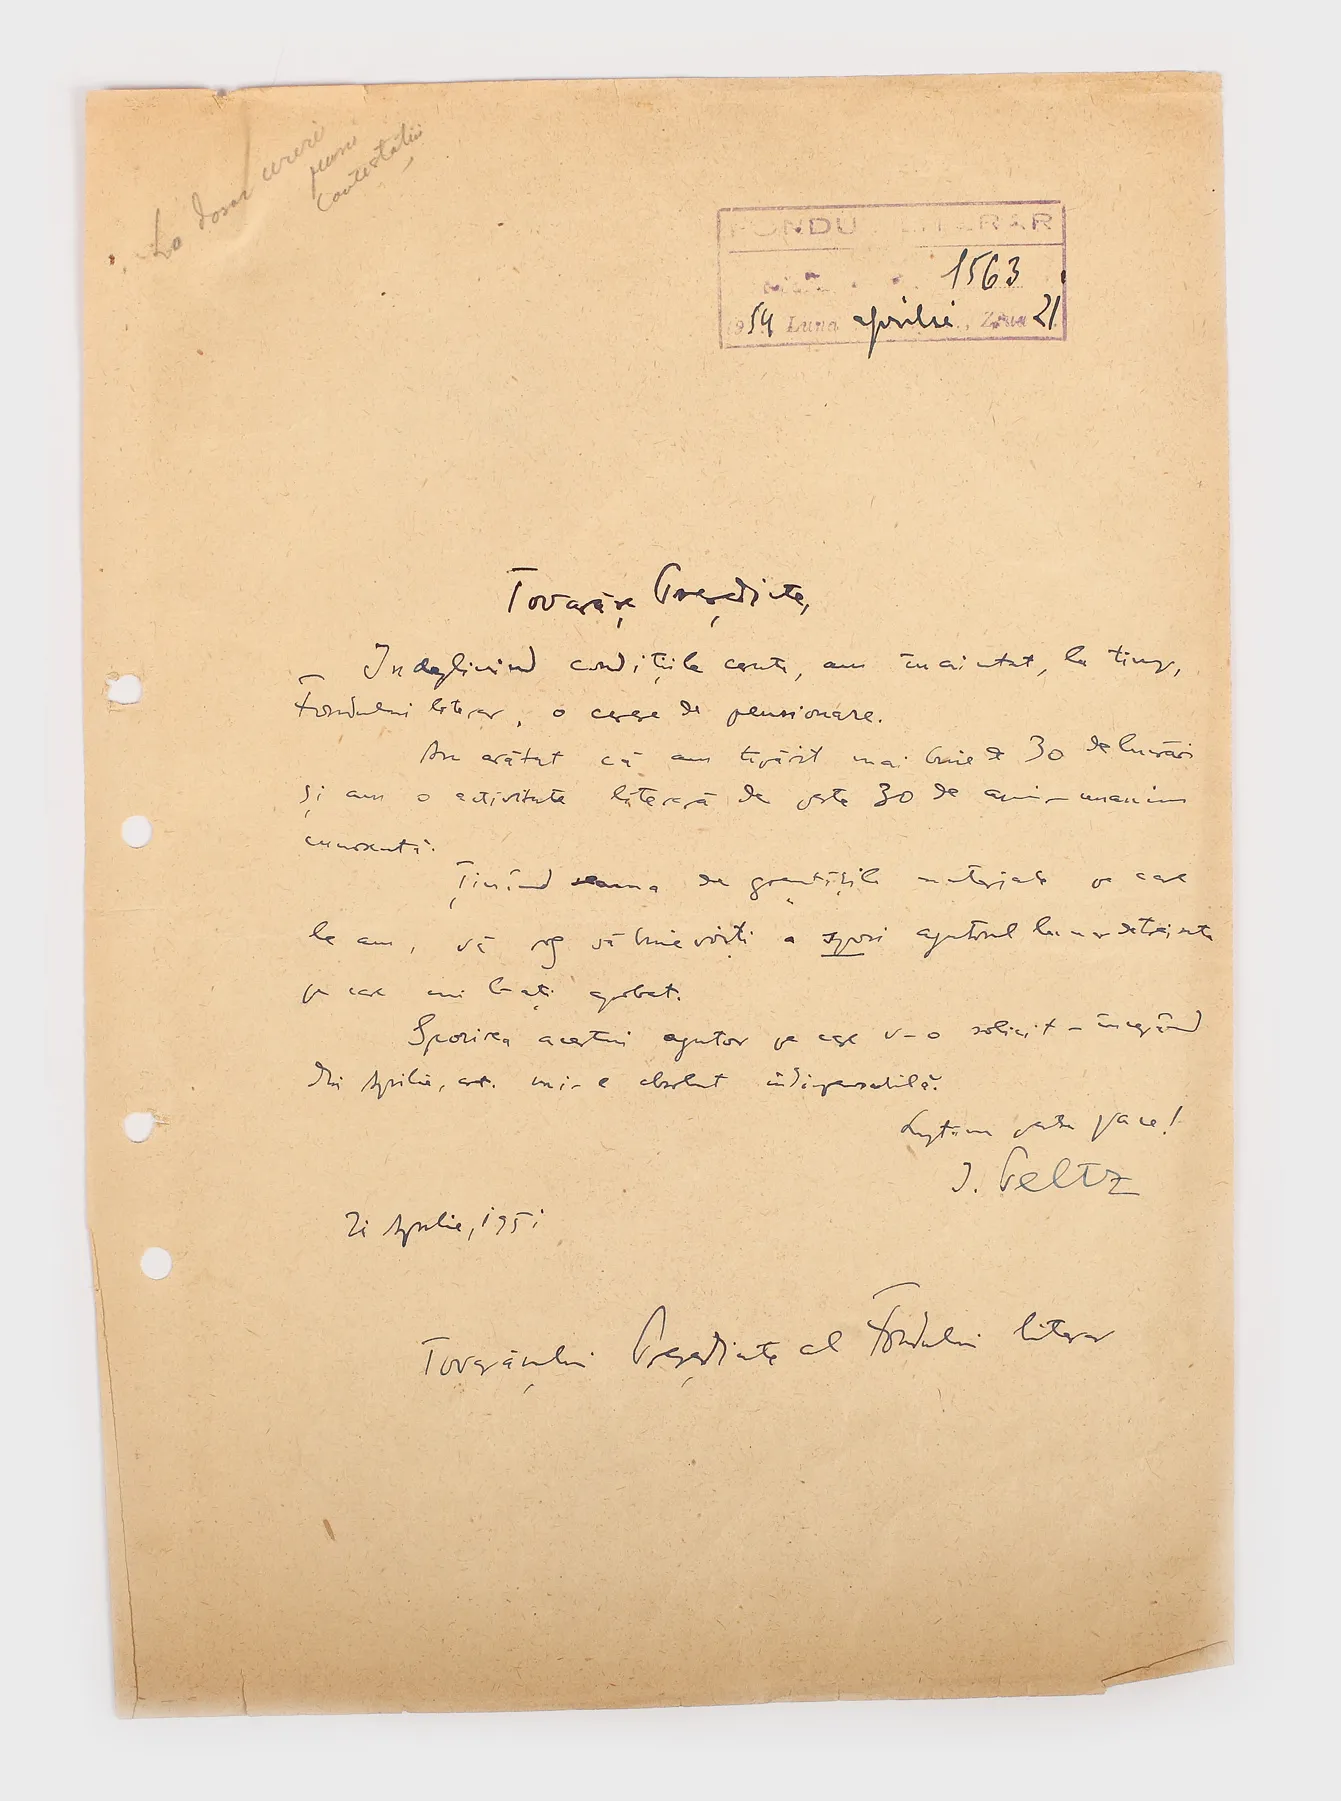 La dosar cereri
pensii
contestații
FONDUL LITERAR
1563
1954 Luna aprilie, Ziua 21
Tovarășe Președinte,
Indeplinind condițiile cerute, am înaintat, la timp,
Fondului literar, o cerere de pensionare.
Am arătat că am tipărit mai bine de 30 de lucrări
și am o activitate literară de peste 30 de ani – unanim
cunoscută.
Ținând seama de greutățile materiale pe care
le am, vă rog să binevoiți a spori ajutorul lunar
pe care mi l-ați aprobat.
Sporirea acestui ajutor pe care v-o solicit – începând
din Aprilie, mi-e absolut indispensabilă.
Luptăm pentru pace!
I. Peltz
21 Aprilie, 1951
Tovarășului Președinte al Fondului literar